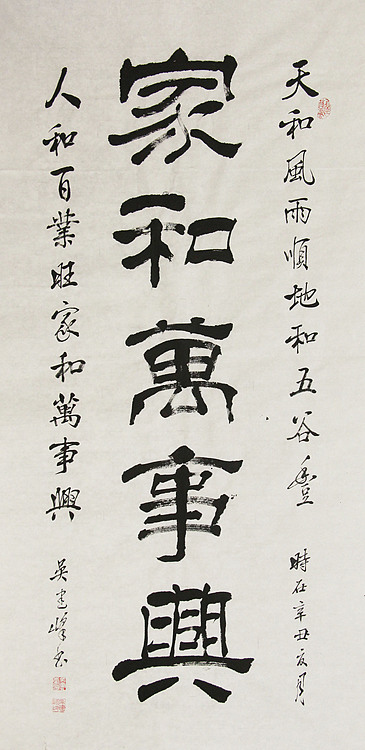 天和風雨順地和五谷豊
時在辛丑亥月
家和萬事興
人和百業旺家和萬事興
吴建峰书